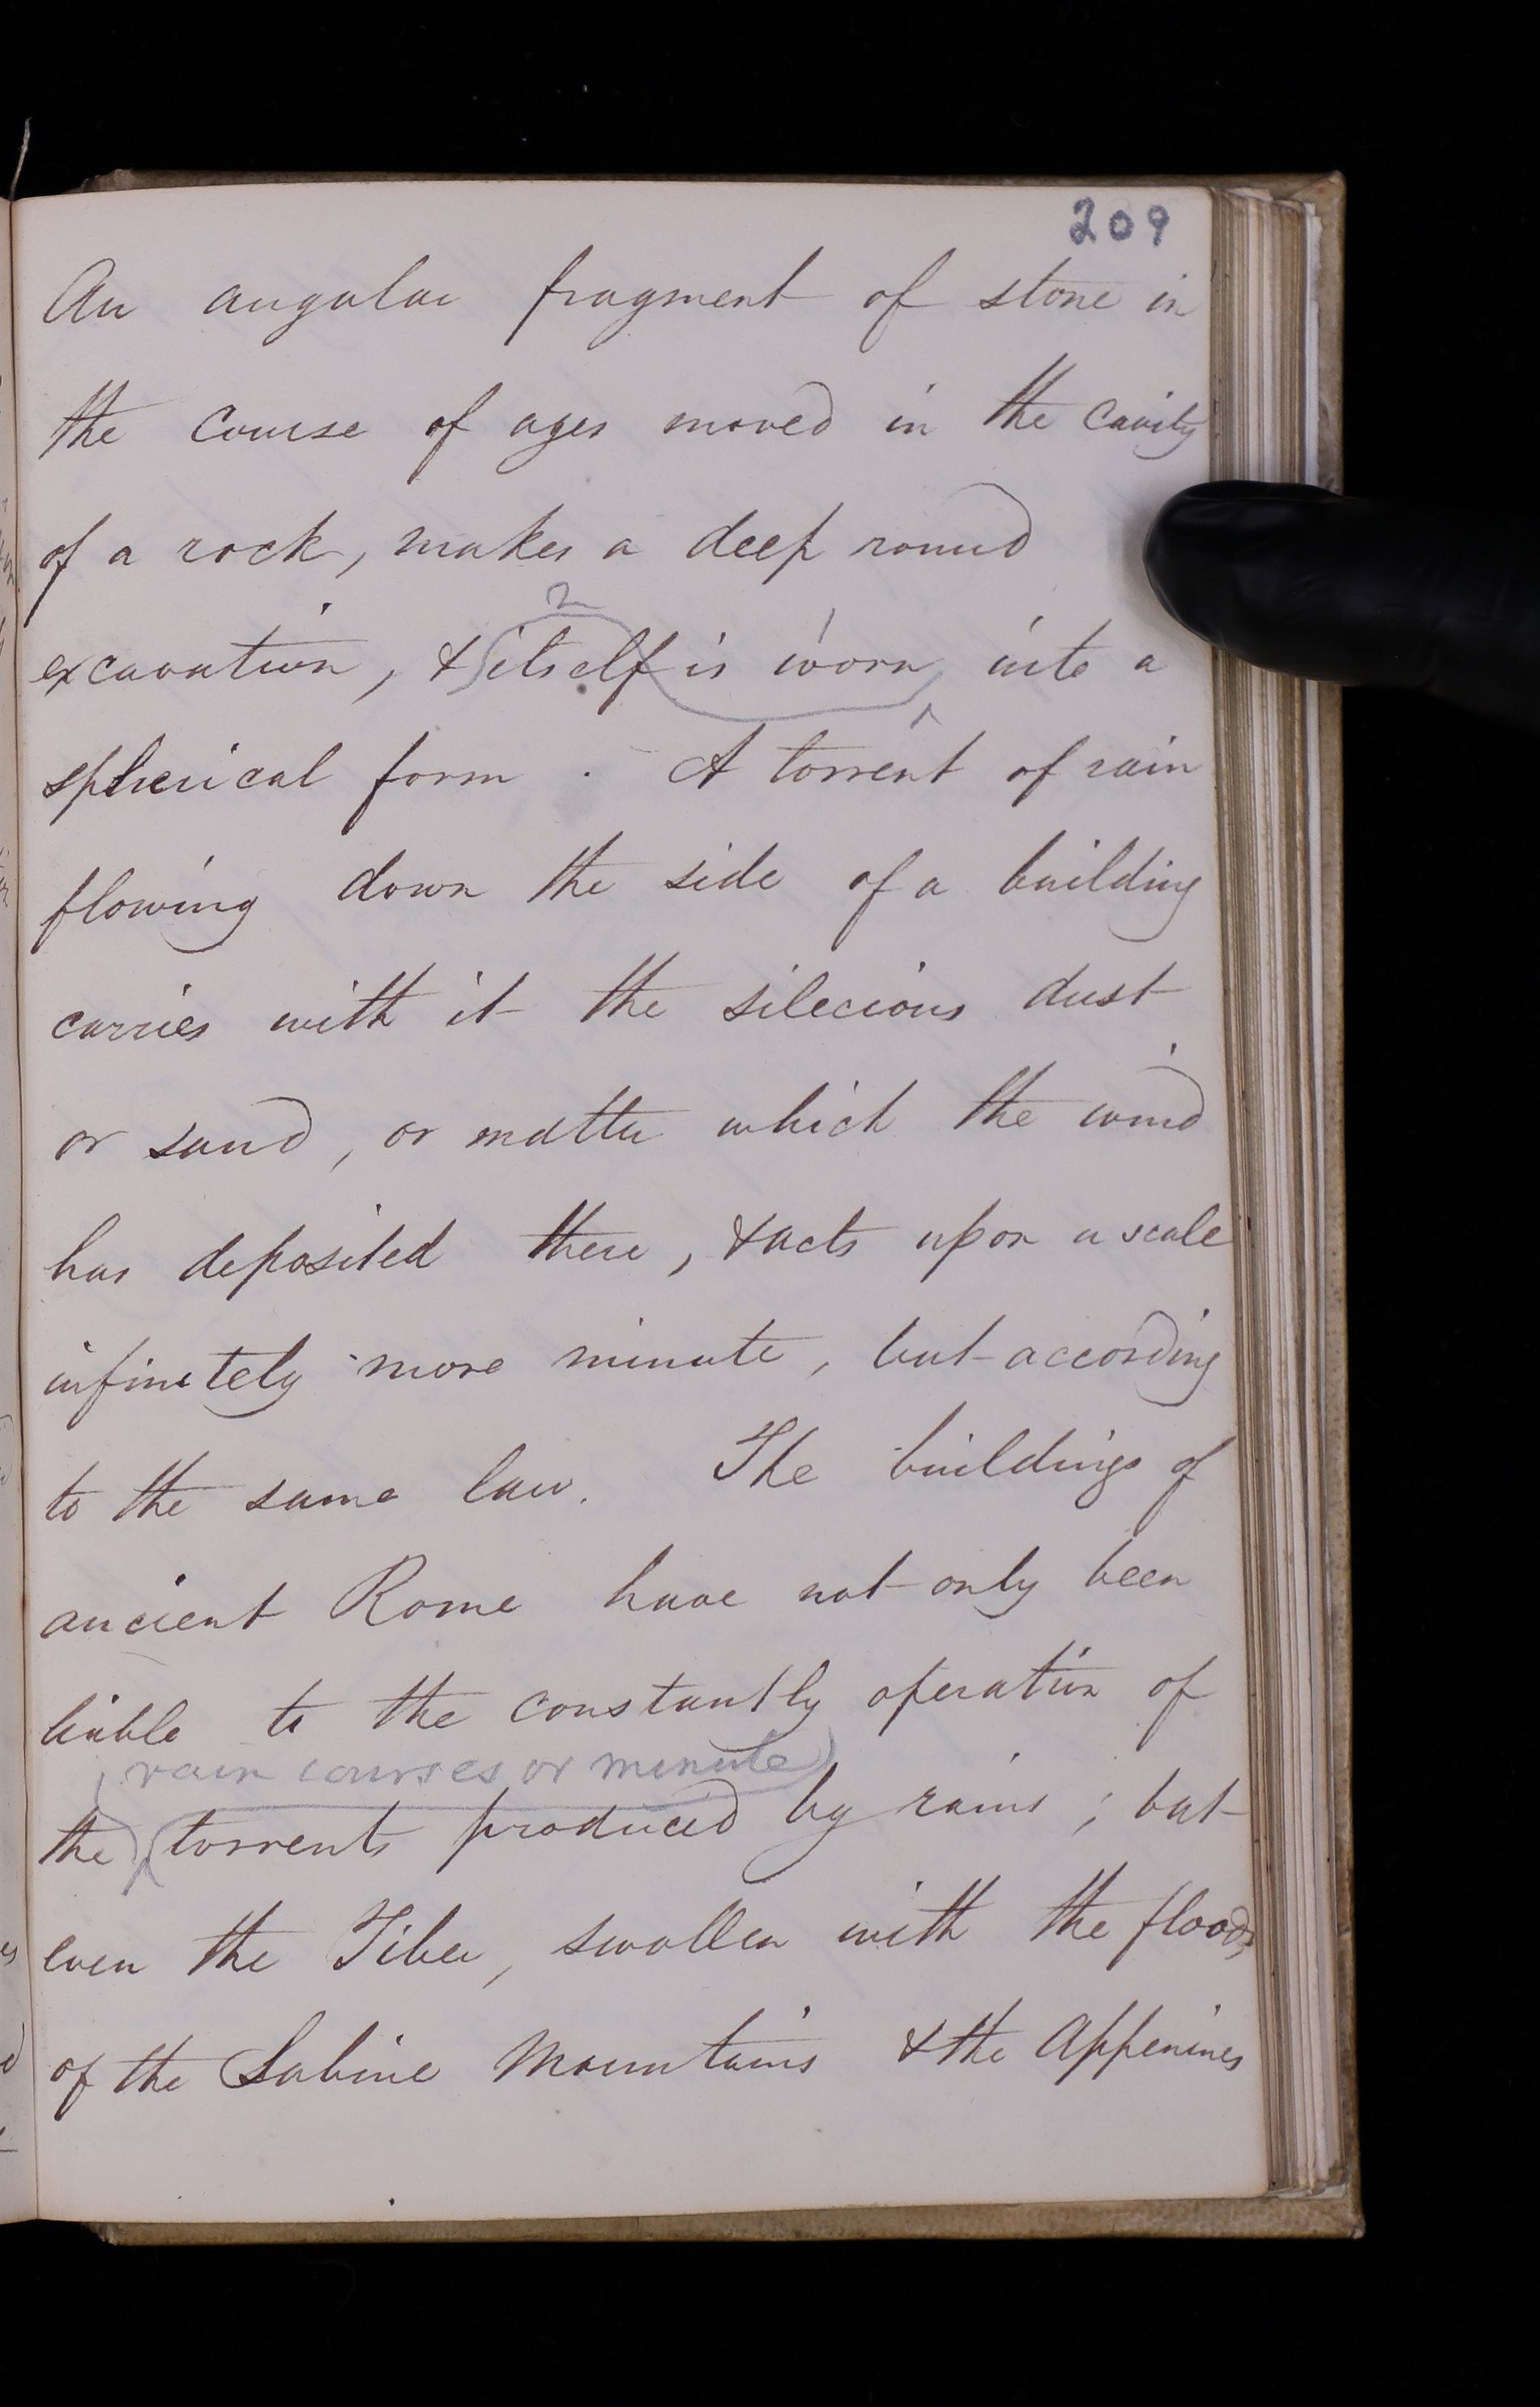 209
An angular fragment of stone in
the course of ages moved in the cavity
of a rock, makes a deep round
2
excavation, & itself is worn into a
spherical form. A torrent of rain
flowing down the side of a building
carries with it the silecious dust
or sand, or matter which the wind
has deposited there, & acts upon a scale
infinitely more minute, but according
to the same law. The buildings of
ancient Rome have not only been
liable to the constantly operation of
rain courses or minute
the torrents produced by rains; but
even the Tiber, swollen with the floods
of the Sabine Mountains & the Appenines